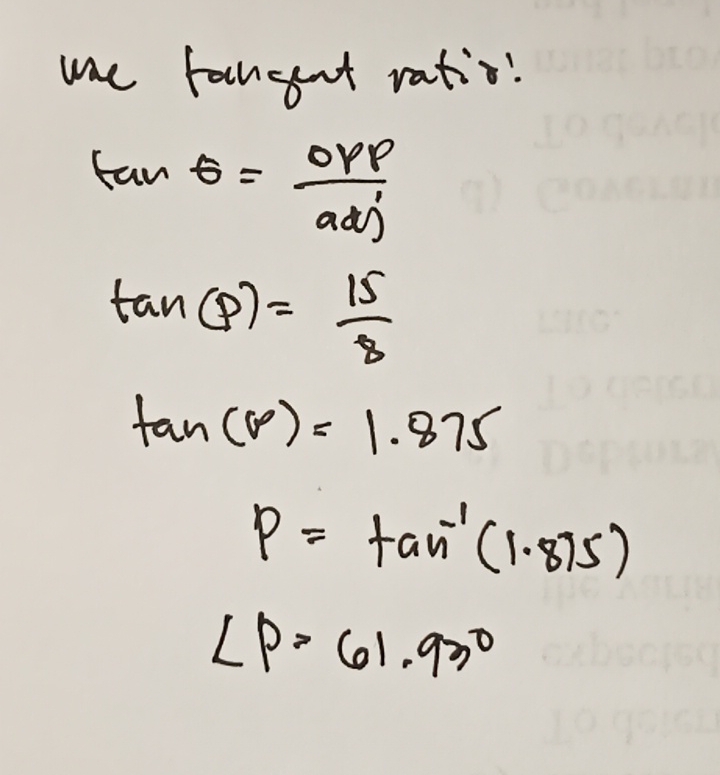 use tangent ratio!
tan θ = opp/adj
tan (P) = 15/8
tan (P) = 1.875
P = tan⁻¹ (1.875)
∠P = 61.93°